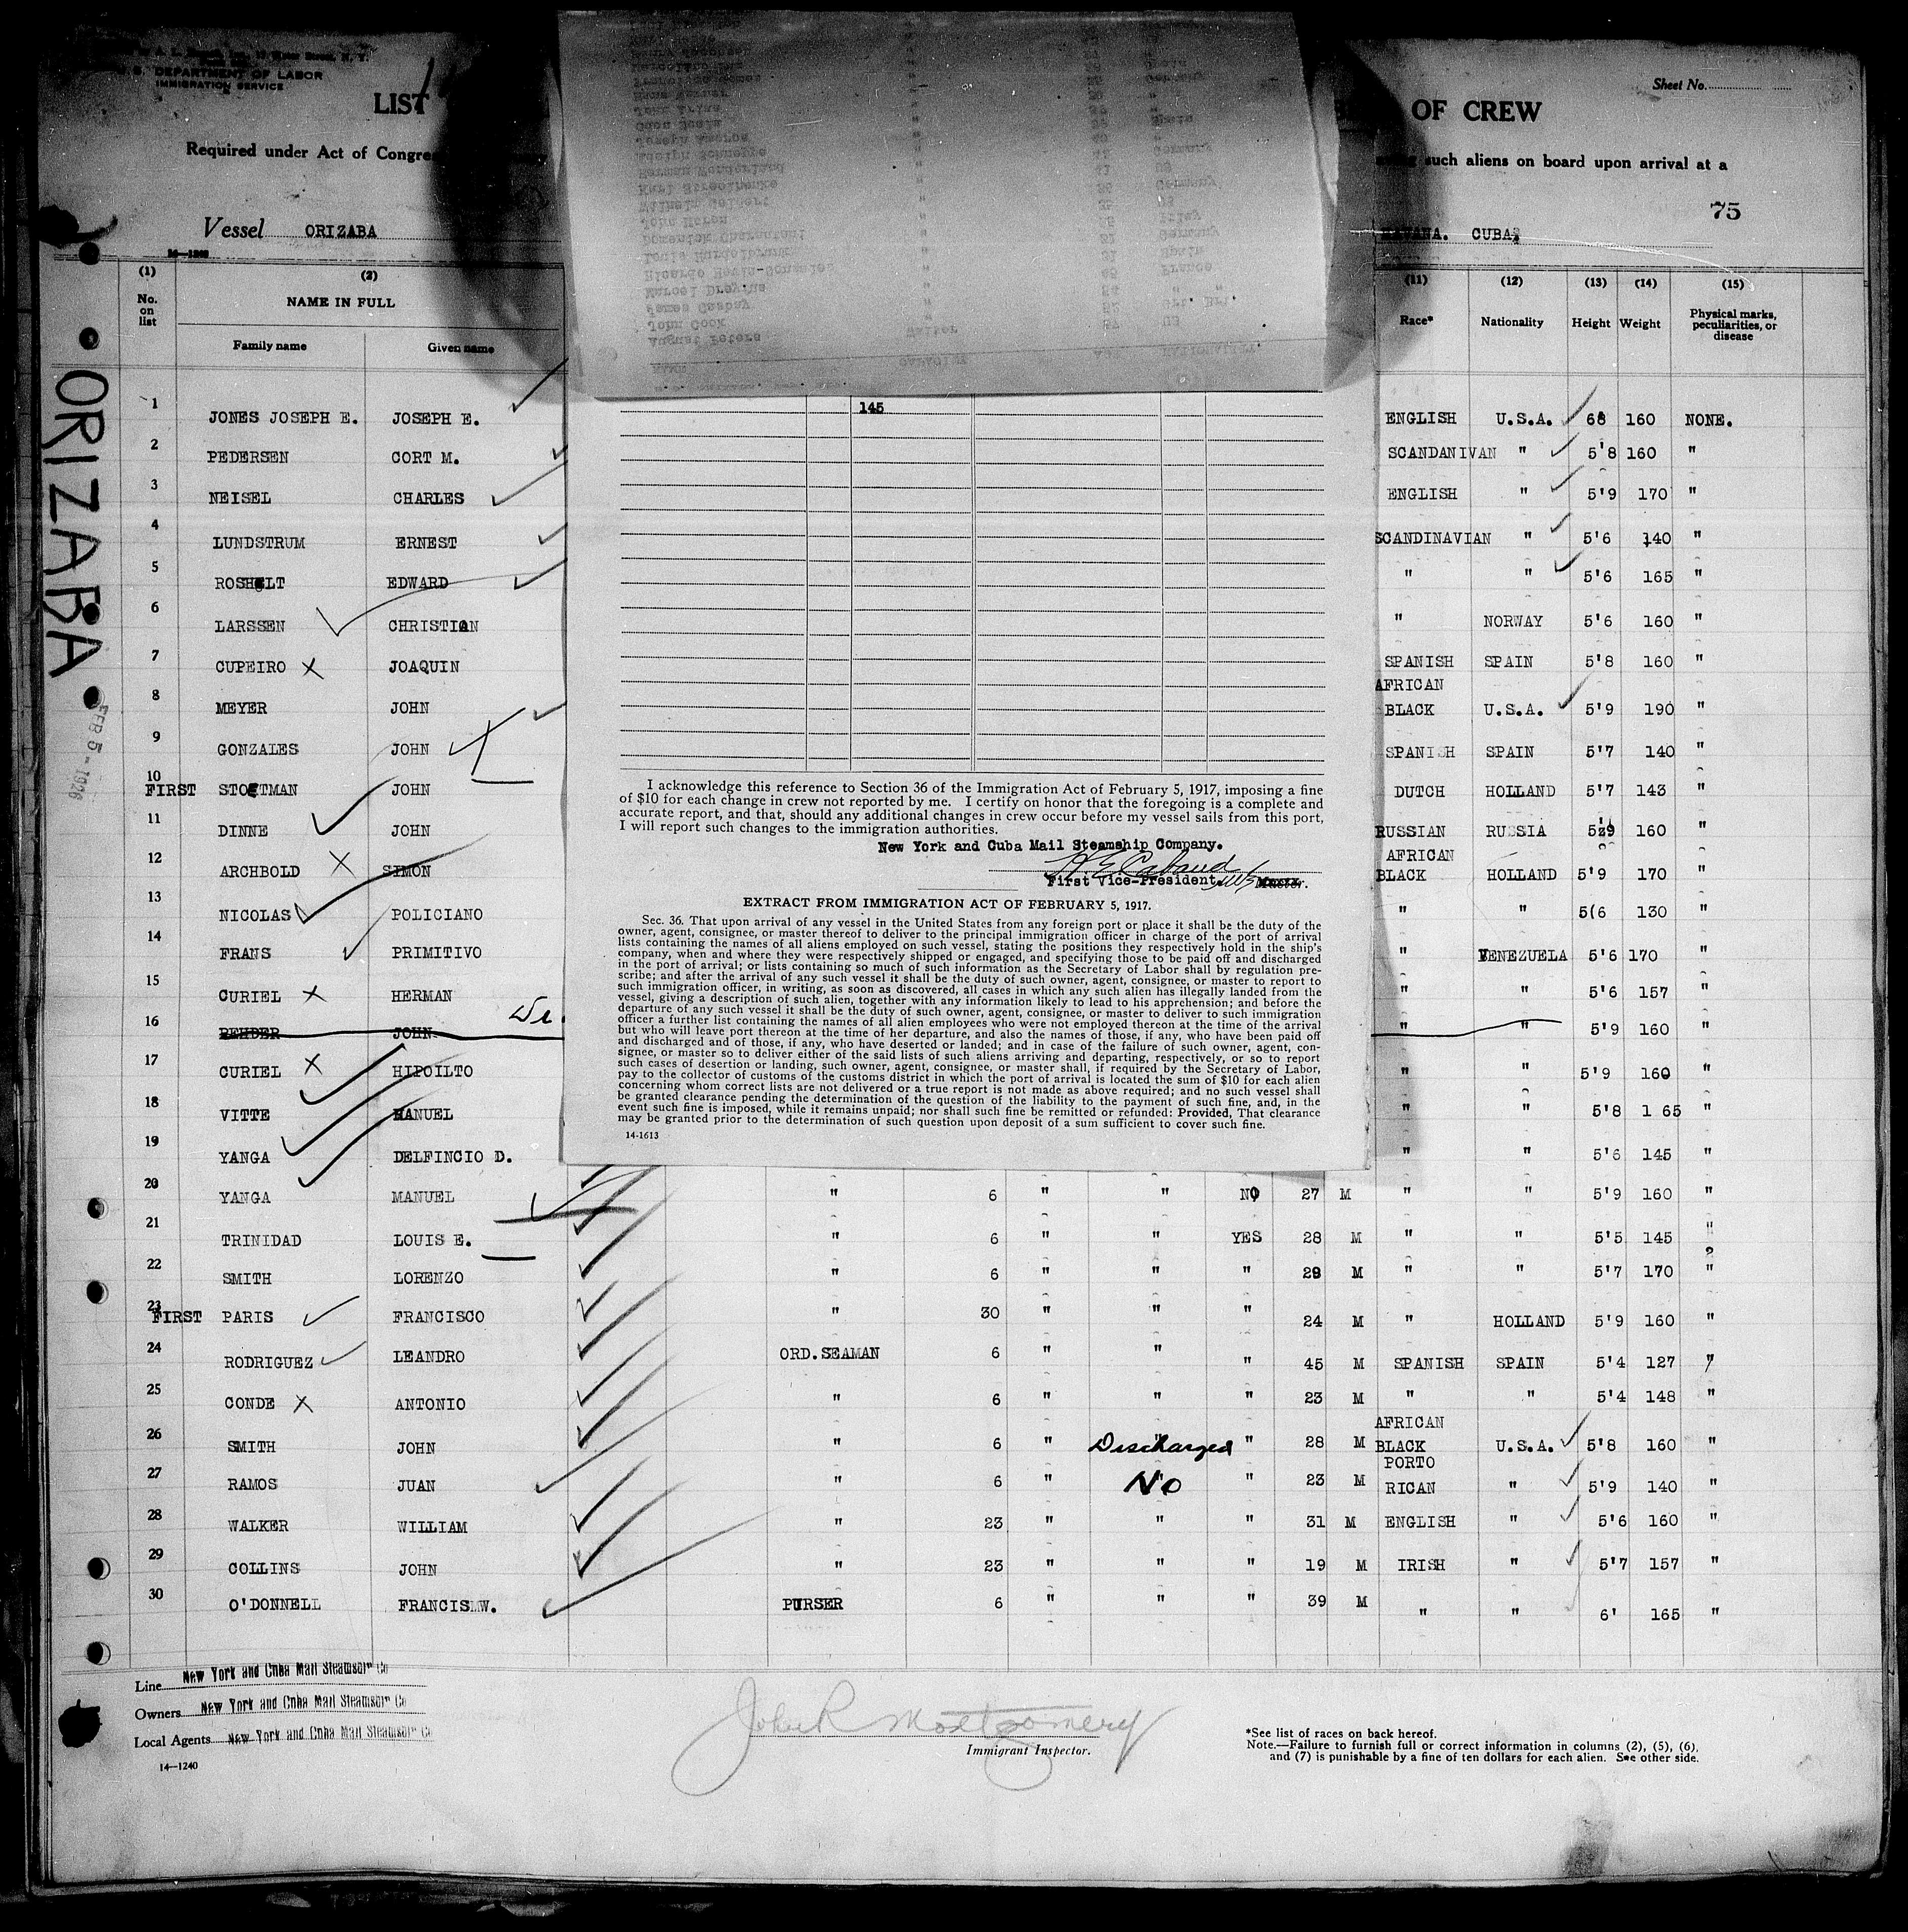 S. DEPARTMENT OF LABOR
IMMIGRATION SERVICE
LIST
OF CREW
Sheet No.
Required under Act of Congre
such aliens on board upon arrival at a
75
Vessel ORIZABA
HAVANA. CUBA.
(1) (2) (11) (12) (13) (14) (15)
No. on list NAME IN FULL Race* Nationality Height Weight Physical marks, peculiarities, or disease
Family name Given name
ORIZABA
FEB 5 - 1926
145
1 JONES JOSEPH E. JOSEPH E. ENGLISH U.S.A. 68 160 NONE.
2 PEDERSEN CORT M. SCANDANIVAN " 5'8 160 "
3 NEISEL CHARLES ENGLISH " 5'9 170 "
4 LUNDSTRUM ERNEST SCANDINAVIAN " 5'6 140 "
5 ROSHOLT EDWARD " " 5'6 165 "
6 LARSSEN CHRISTIAN " NORWAY 5'6 160 "
7 CUPEIRO JOAQUIN SPANISH SPAIN 5'8 160 "
8 MEYER JOHN AFRICAN BLACK U.S.A. 5'9 190 "
9 GONZALES JOHN SPANISH SPAIN 5'7 140 "
10 FIRST STOETMAN JOHN DUTCH HOLLAND 5'7 143 "
11 DINNE JOHN RUSSIAN RUSSIA 5'9 160 "
12 ARCHBOLD SIMON AFRICAN BLACK HOLLAND 5'9 170 "
13 NICOLAS POLICIANO " " 5(6 130 "
14 FRANS PRIMITIVO " VENEZUELA 5'6 170 "
15 CURIEL HERMAN " " 5'6 157 "
16 REHDER JOHN " " 5'9 160 "
17 CURIEL HIPOILTO " " 5'9 160 "
18 VITTE MANUEL " " 5'8 1 65 "
19 YANGA DELFINCIO D. " " 5'6 145 "
20 YANGA MANUEL " 6 " " NO 27 M " " 5'9 160 "
21 TRINIDAD LOUIS E. " 6 " " YES 28 M " " 5'5 145 "
22 SMITH LORENZO " 6 " " " 29 M " " 5'7 170 "
23 FIRST PARIS FRANCISCO " 30 " " " 24 M " HOLLAND 5'9 160 "
24 RODRIGUEZ LEANDRO ORD.SEAMAN 6 " " " 45 M SPANISH SPAIN 5'4 127 "
25 CONDE ANTONIO " 6 " " " 23 M " " 5'4 148 "
26 SMITH JOHN " 6 " Discharged " 28 M AFRICAN BLACK U.S.A. 5'8 160 "
27 RAMOS JUAN " 6 " No " 23 M PORTO RICAN " 5'9 140 "
28 WALKER WILLIAM " 23 " " " 31 M ENGLISH " 5'6 160 "
29 COLLINS JOHN " 23 " " " 19 M IRISH " 5'7 157 "
30 O'DONNELL FRANCIS W. PURSER 6 " " " 39 M " " 6' 165 "
I acknowledge this reference to Section 36 of the Immigration Act of February 5, 1917, imposing a fine
of $10 for each change in crew not reported by me. I certify on honor that the foregoing is a complete and
accurate report, and that, should any additional changes in crew occur before my vessel sails from this port,
I will report such changes to the immigration authorities.
New York and Cuba Mail Steamship Company.
First Vice-President Master.
EXTRACT FROM IMMIGRATION ACT OF FEBRUARY 5, 1917.
Sec. 36. That upon arrival of any vessel in the United States from any foreign port or place it shall be the duty of the
owner, agent, consignee, or master thereof to deliver to the principal immigration officer in charge of the port of arrival
lists containing the names of all aliens employed on such vessel, stating the positions they respectively hold in the ship's
company, when and where they were respectively shipped or engaged, and specifying those to be paid off and discharged
in the port of arrival; or lists containing so much of such information as the Secretary of Labor shall by regulation pre-
scribe; and after the arrival of any such vessel it shall be the duty of such owner, agent, consignee, or master to report to
such immigration officer, in writing, as soon as discovered, all cases in which any such alien has illegally landed from the
vessel, giving a description of such alien, together with any information likely to lead to his apprehension; and before the
departure of any such vessel it shall be the duty of such owner, agent, consignee, or master to deliver to such immigration
officer a further list containing the names of all alien employees who were not employed thereon at the time of the arrival
but who will leave port thereon at the time of her departure, and also the names of those, if any, who have been paid off
and discharged and of those, if any, who have deserted or landed; and in case of the failure of such owner, agent, con-
signee, or master so to deliver either of the said lists of such aliens arriving and departing, respectively, or so to report
such cases of desertion or landing, such owner, agent, consignee, or master, shall, if required by the Secretary of Labor,
pay to the collector of customs of the customs district in which the port of arrival is located the sum of $10 for each alien
concerning whom correct lists are not delivered or a true report is not made as above required; and no such vessel shall
be granted clearance pending the determination of the question of the liability to the payment of such fine, and, in the
event such fine is imposed, while it remains unpaid; nor shall such fine be remitted or refunded: Provided, That clearance
may be granted prior to the determination of such question upon deposit of a sum sufficient to cover such fine.
14-1613
Line New York and Cuba Mail Steamship Co
Owners New York and Cuba Mail Steamship Co
Local Agents New York and Cuba Mail Steamship Co
14—1240
John R Montgomery
Immigrant Inspector.
*See list of races on back hereof.
Note.—Failure to furnish full or correct information in columns (2), (5), (6),
and (7) is punishable by a fine of ten dollars for each alien. See other side.